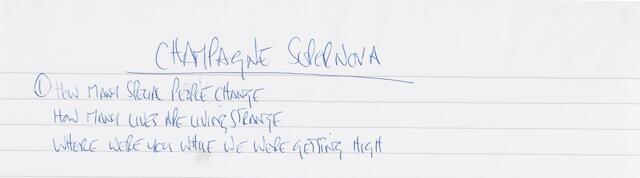 CHAMPAGNE SUPERNOVA
① HOW MANY SPECIAL PEOPLE CHANGE
HOW MANY LIVES ARE LIVING STRANGE
WHERE WERE YOU WHILE WE WERE GETTING HIGH